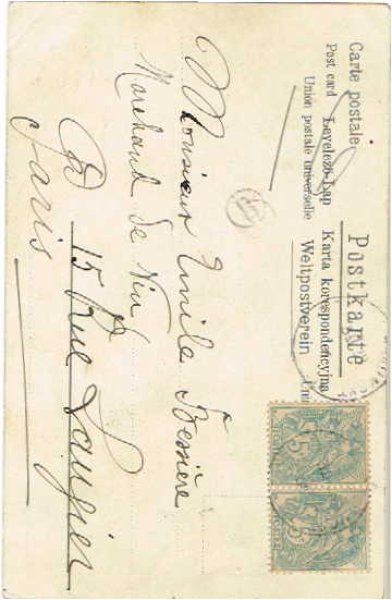 Carte postale Postkarte
Post card Levelező-Lap Karta korespondencyjna
Union postale universelle Weltpostverein
Monsieur Emile Bessière
Marchand de Vin
15 Rue Laugier
Paris
5
5